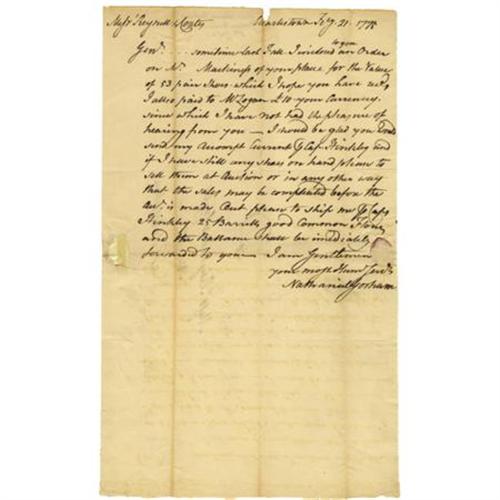 Messrs Reynell & Coates Charlestown Feby. 21. 1775
to you
Gent. sometime last Fall I inclosed an Order
on Mr. Mackiness of your place for the Value
of 53 pair Shoes which I hope you have recd,
I also paid to Mr Logan £10 your Currency.
since which I have not had the pleasure of
hearing from you — I should be glad you
send my Accompt Current Cap. Hinkley and
if I have still any shoes on hand please to
sell them at Auction or in any other way
that the sales may be compleated before the
is made But please to ship me Capt
Hinkley 25 Barrels good Common Flour
and the Ballance shall be imediately
forwarded to you — I am Gentlemen
your most Hum Servt.
Nathaniel Gorham